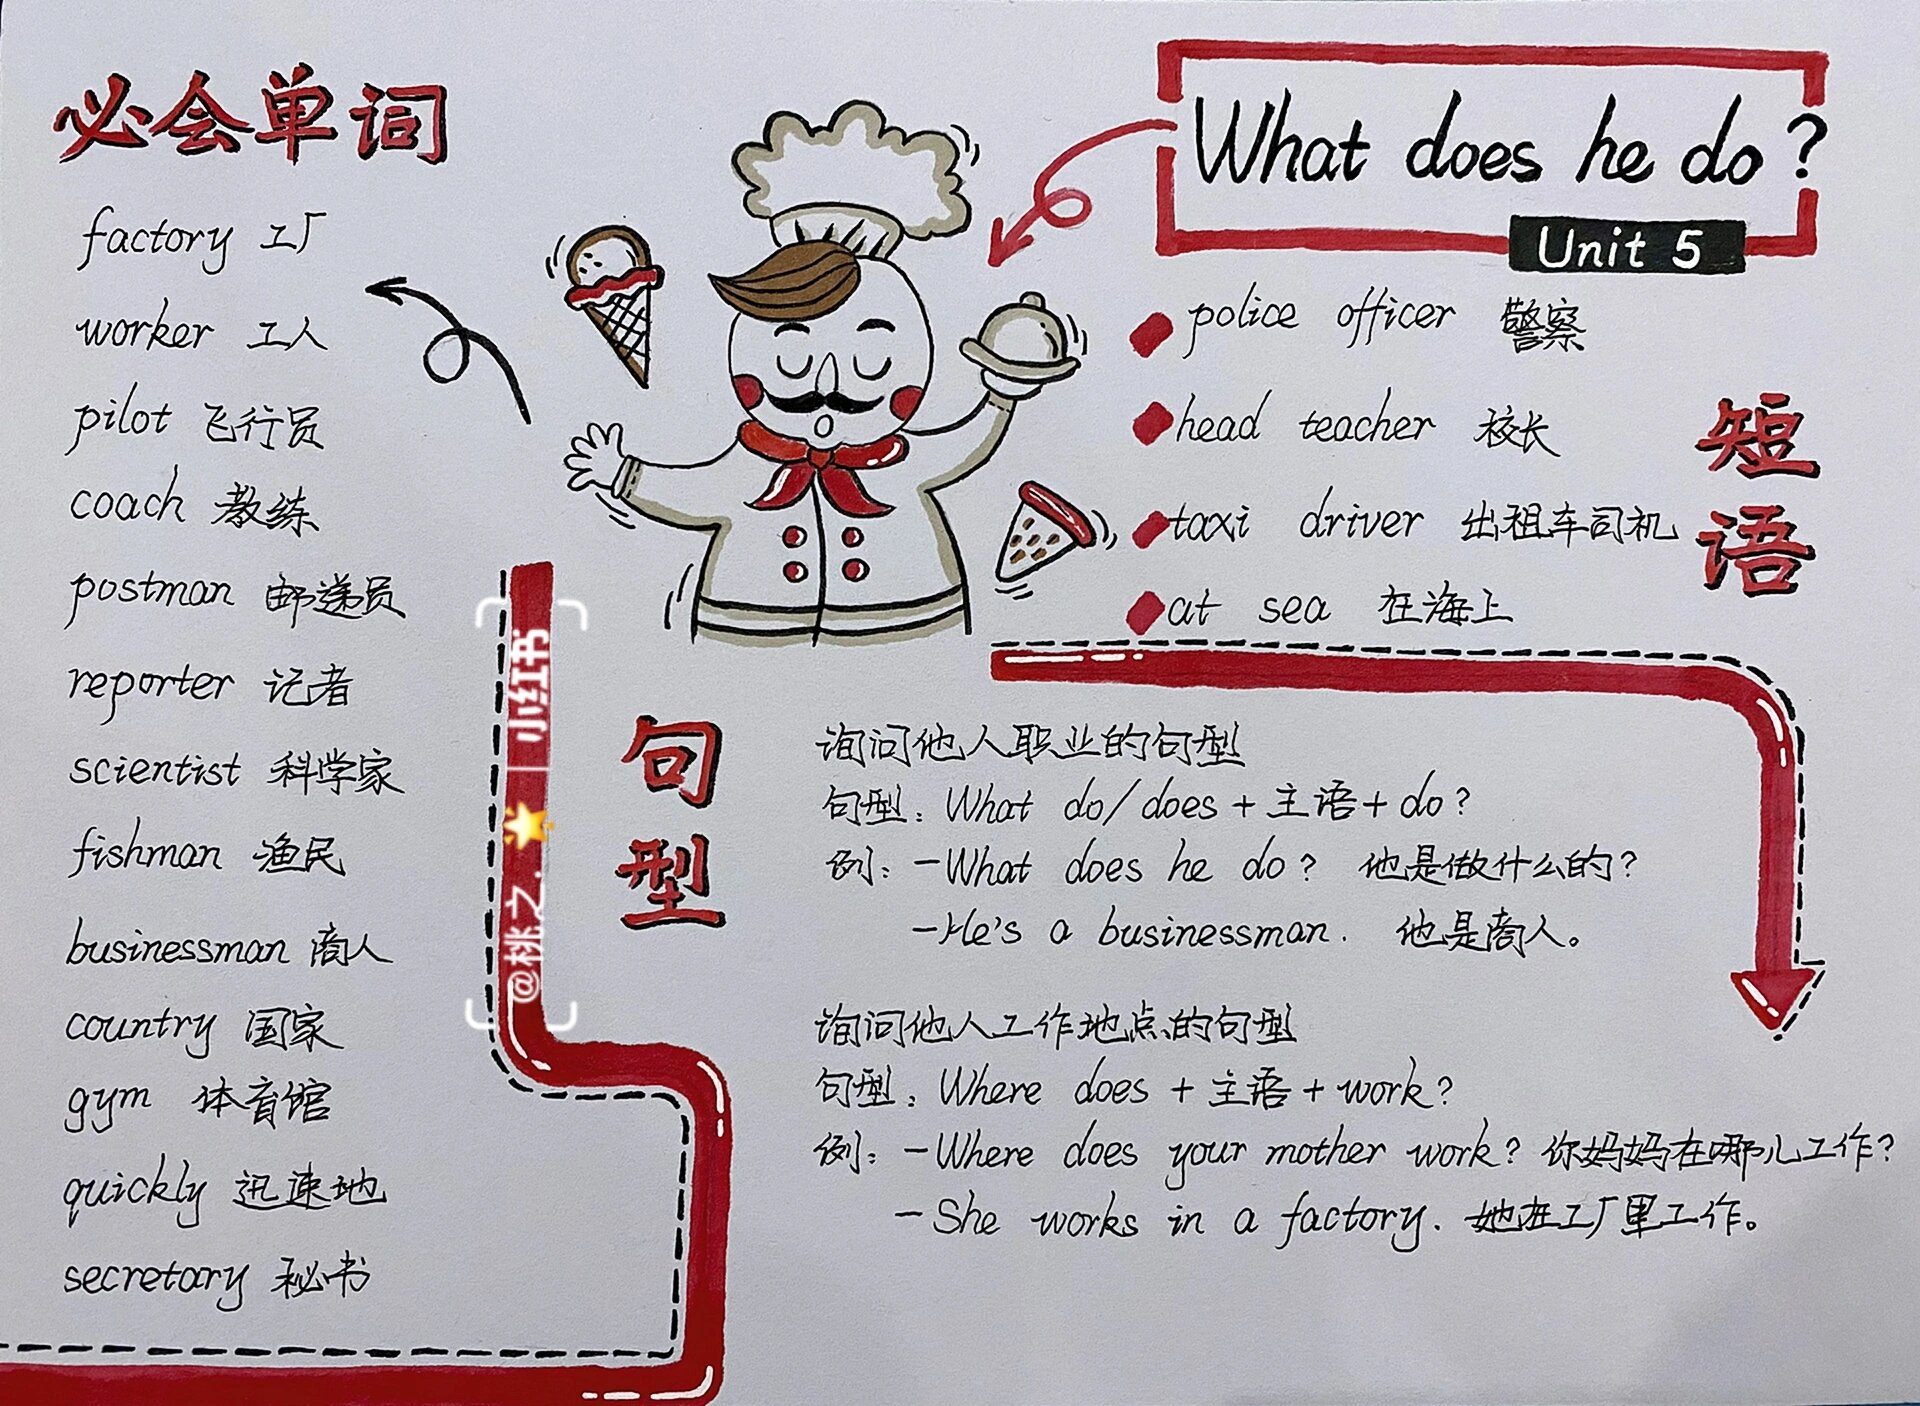 必会单词
factory 工厂
worker 工人
pilot 飞行员
coach 教练
postman 邮递员
reporter 记者
scientist 科学家
fishman 渔民
businessman 商人
country 国家
gym 体育馆
quickly 迅速地
secretary 秘书
What does he do?
Unit 5
police officer 警察
head teacher 校长
taxi driver 出租车司机
at sea 在海上
短语
句型
询问他人职业的句型
句型：What do/does+主语+do?
例：-What does he do? 他是做什么的?
-He's a businessman. 他是商人。
询问他人工作地点的句型
句型：Where does+主语+work?
例：-Where does your mother work? 你妈妈在哪儿工作?
-She works in a factory. 她在工厂里工作。
@桃之.🌟 | 小红书